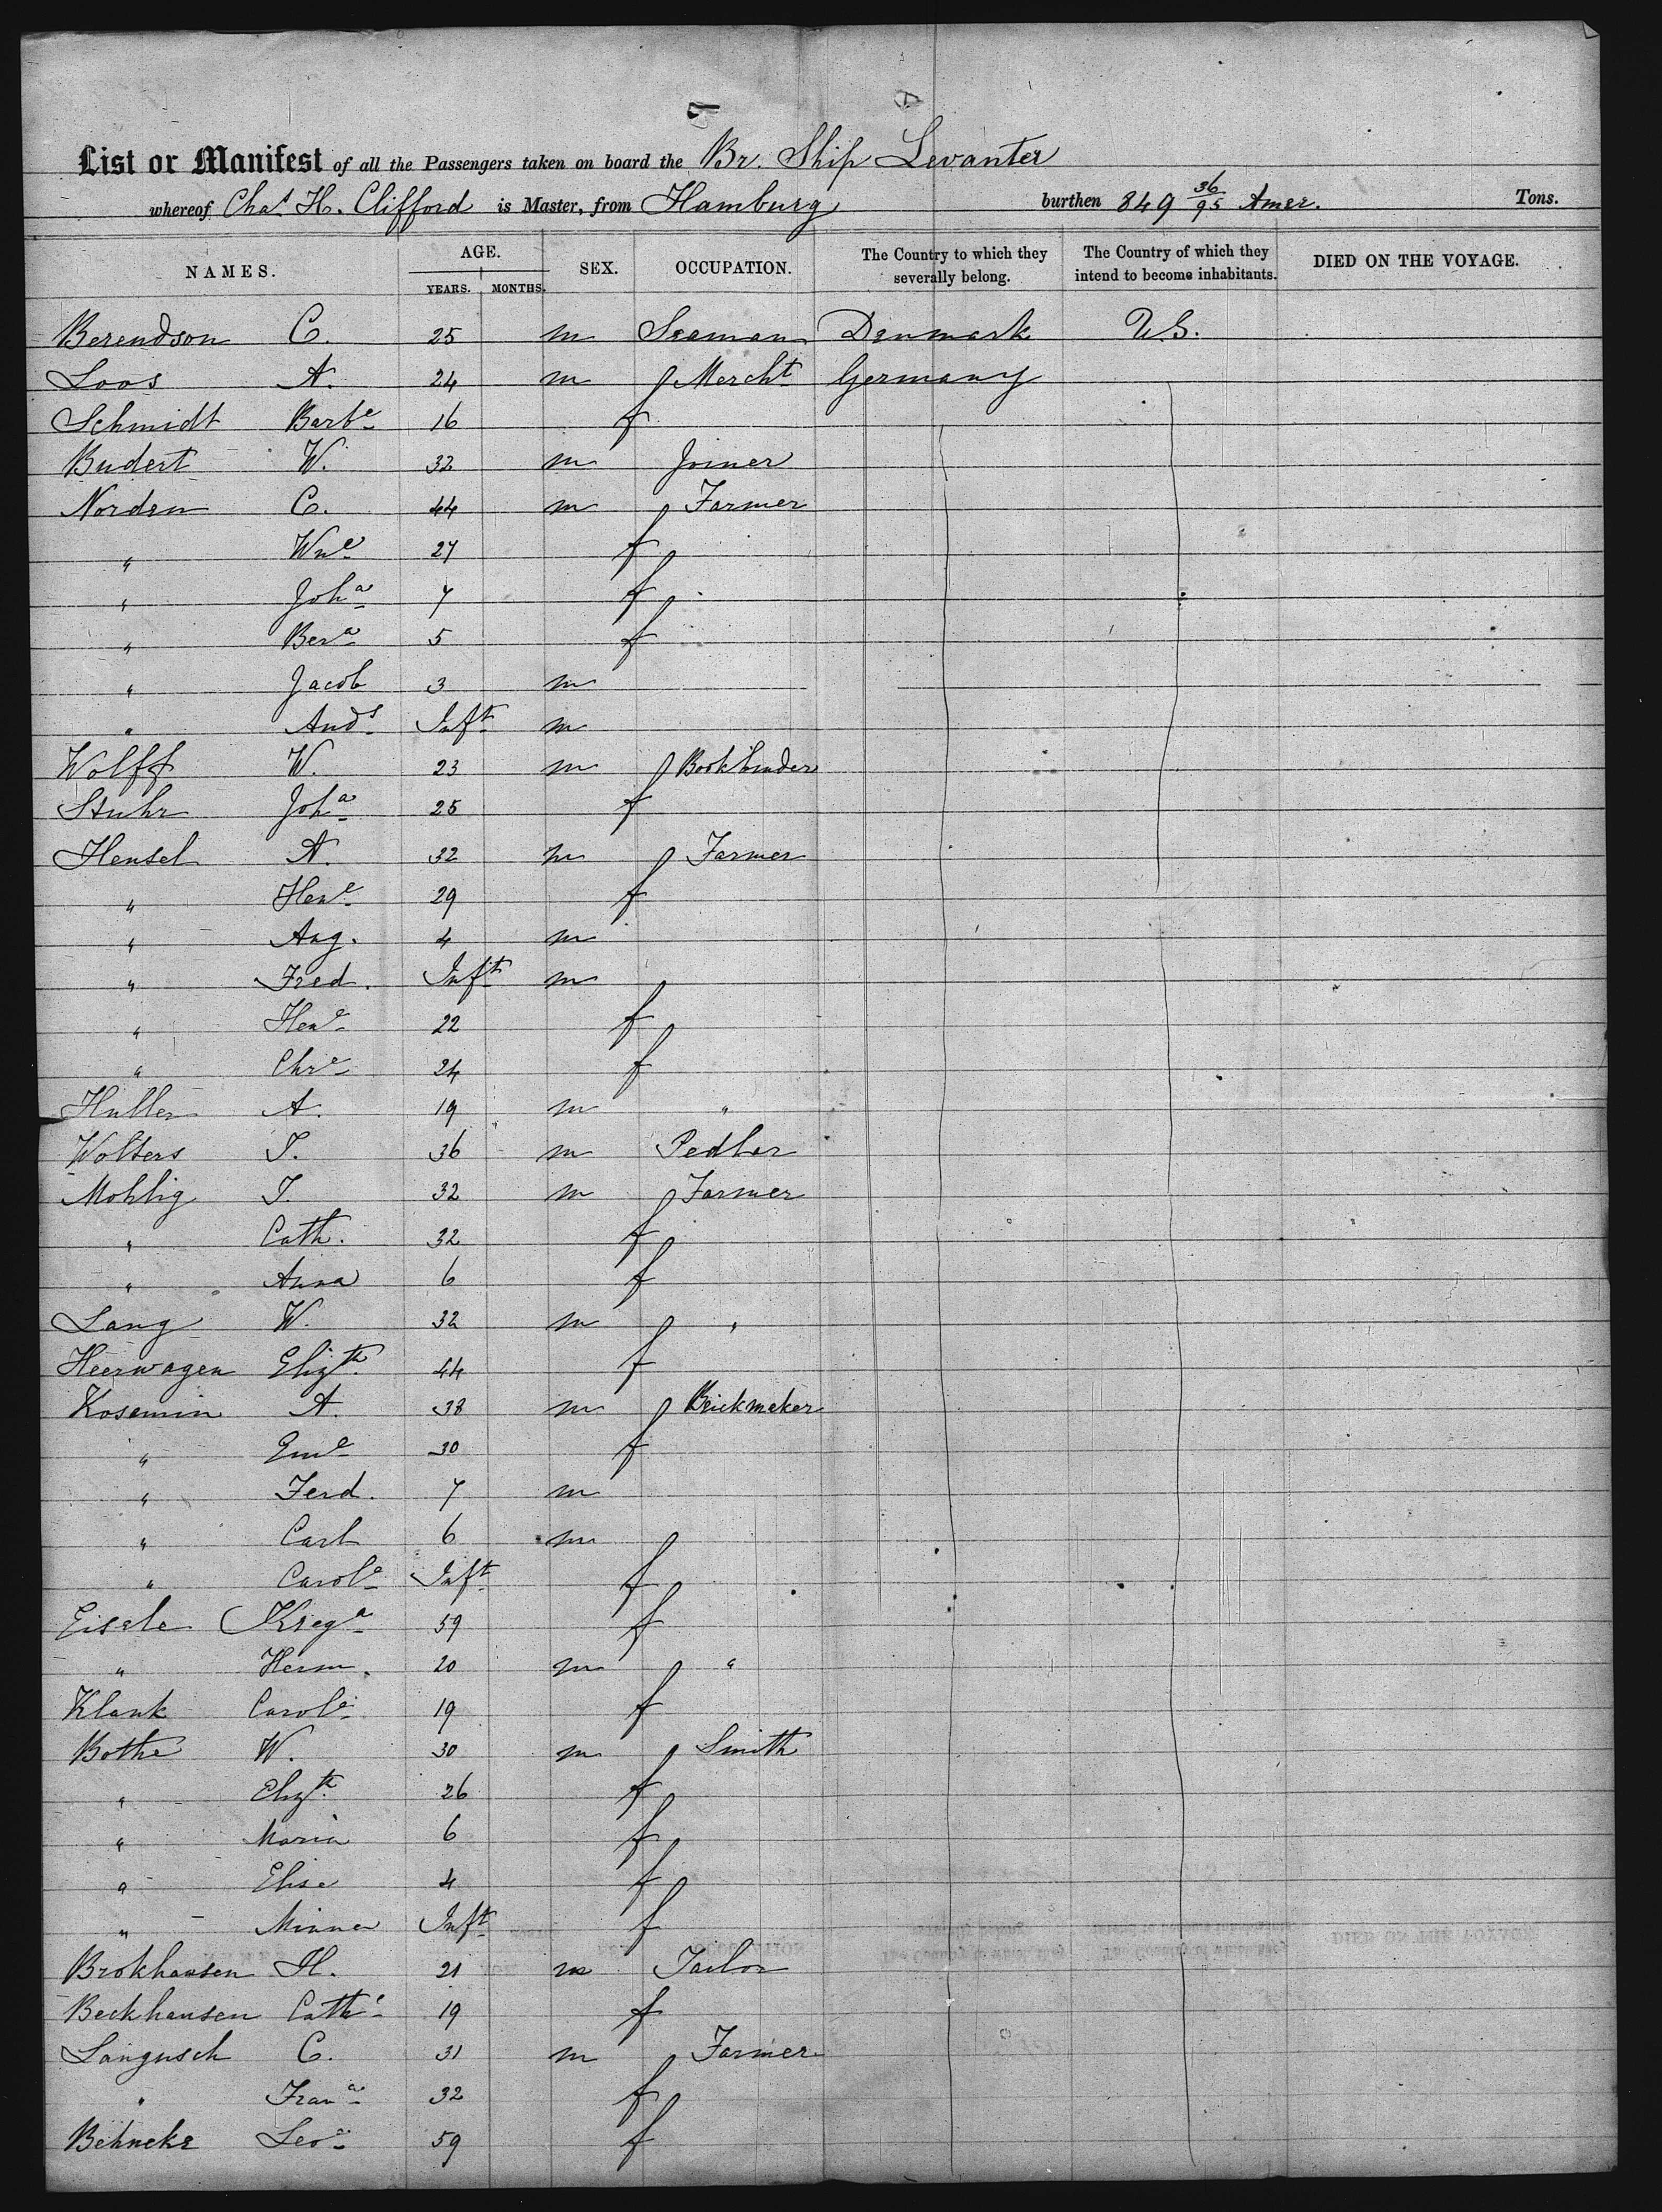 List or Manifest of all the Passengers taken on board the Br. Ship Levanter
whereof Chas. H. Clifford is Master, from Hamburg burthen 849 36/95 Amer. Tons.
NAMES. AGE. YEARS. MONTHS. SEX. OCCUPATION. The Country to which they severally belong. The Country of which they intend to become inhabitants. DIED ON THE VOYAGE.
Berendson C. 25 m Seaman Denmark U.S.
Loos A. 24 m Mercht Germany
Schmidt Barbe 16 f
Budert W. 32 m Joiner
Norden C. 44 m Farmer
" Wne 27 f
" Joha 7 f
" Bera 5 f
" Jacob 3 m
" Ands Inft m
Wolff W. 23 m Bookbinder
Stuhr Joha 25 f
Hensel A. 32 m Farmer
" Hene 29 f
" Aug. 4 m
" Fred. Inft m
" Hene 22 f
" Chre 24 f
Huller A. 19 m "
Wolters J. 36 m Pedlar
Mohlig J. 32 m Farmer
" Cath. 32 f
" Anna 6 f
Lang W. 32 m "
Heerwagen Elizth. 44 f
Kosemin A. 38 m Brickmaker
" Eme 30 f
" Ferd. 7 m
" Carl 6 m
" Carole Inft f
Eisele Krega 59 f
" Herm. 20 m "
Klank Carole 19 f
Bothe W. 30 m Smith
" Elizth. 26 f
" Maria 6 f
" Elise 4 f
" Minna Inft f
Brokhausen H. 21 m Tailor
Beckhausen Cathe 19 f
Langusch C. 31 m Farmer
" Frana 32 f
Behneke Leoe 59 f